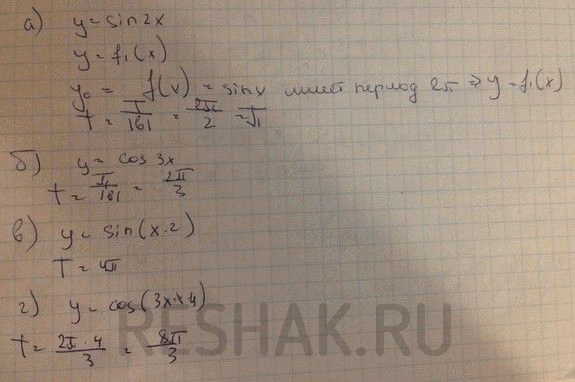 а) y = sin2x
y = f₁(x)
y₀ = f(v) = sinv имеет период 2π ⇒ y = f₁(x)
T = T/|b| = 2π/2 = π
б) y = cos 3x
T = T₁/|b| = 2π/3
в) y = sin(x·2)
T = 4π
г) y = cos(3x·4)
T = 2π·4/3 = 8π/3
RESHAK.RU